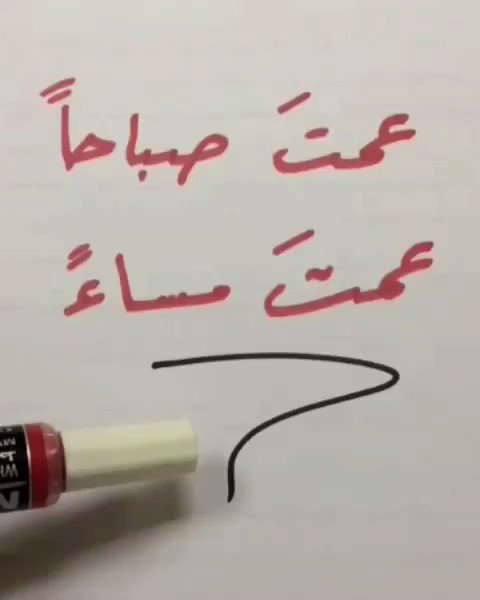 عمتَ صباحاً
عمتَ مساءً